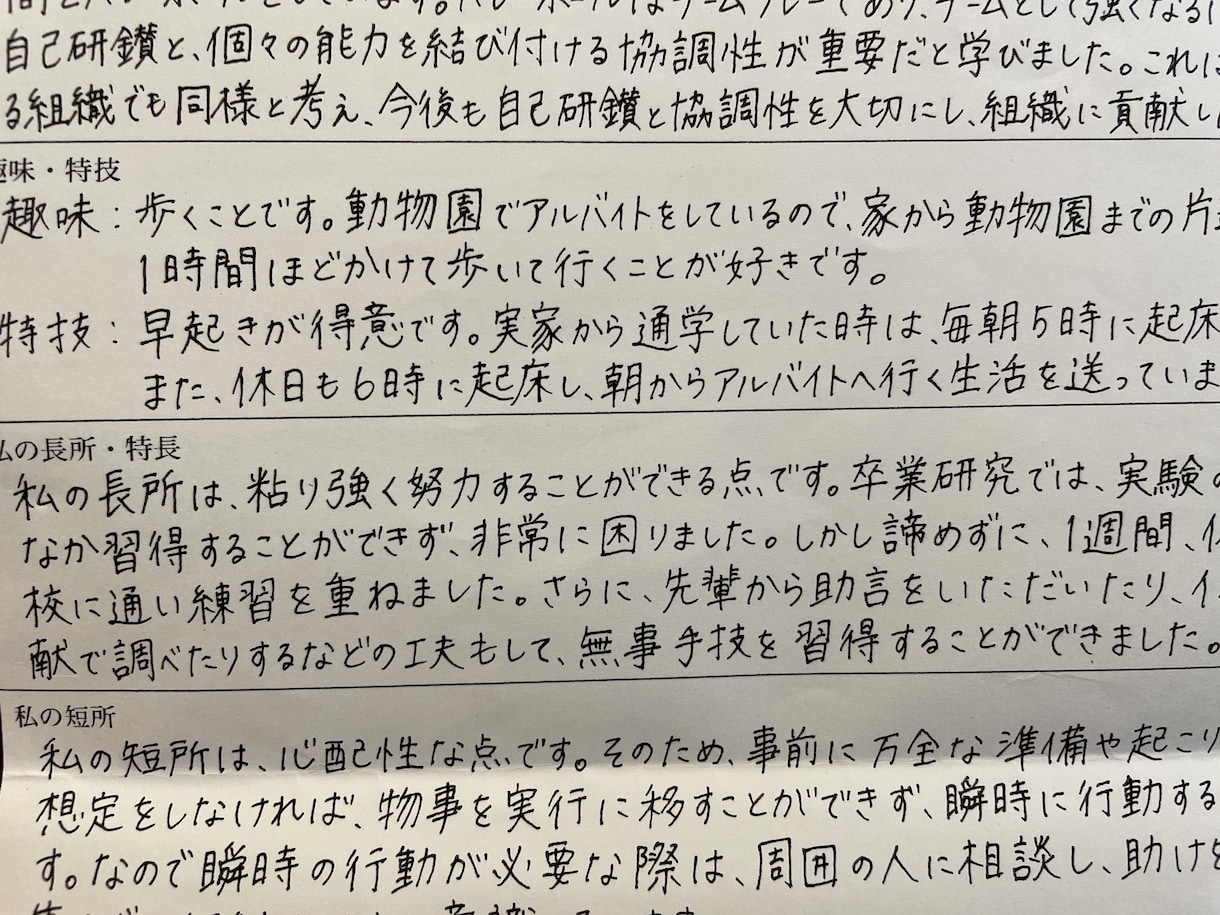 自己研鑽と、個々の能力を結び付ける協調性が重要だと学びました。これは
る組織でも同様と考え、今後も自己研鑽と協調性を大切にし、組織に貢献し
趣味・特技
趣味：歩くことです。動物園でアルバイトをしているので、家から動物園までの片
1時間ほどかけて歩いて行くことが好きです。
特技：早起きが得意です。実家から通学していた時は、毎朝5時に起床
また、休日も6時に起床し、朝からアルバイトへ行く生活を送っていま
私の長所・特長
私の長所は、粘り強く努力することができる点です。卒業研究では、実験の
なか習得することができず、非常に困りました。しかし諦めずに、1週間、
校に通い練習を重ねました。さらに、先輩から助言をいただいたり、
献で調べたりするなどの工夫もして、無事手技を習得することができました。
私の短所
私の短所は、心配性な点です。そのため、事前に万全な準備や起こり
想定をしなければ、物事を実行に移すことができず、瞬時に行動する
す。なので瞬時の行動が必要な際は、周囲の人に相談し、助けを